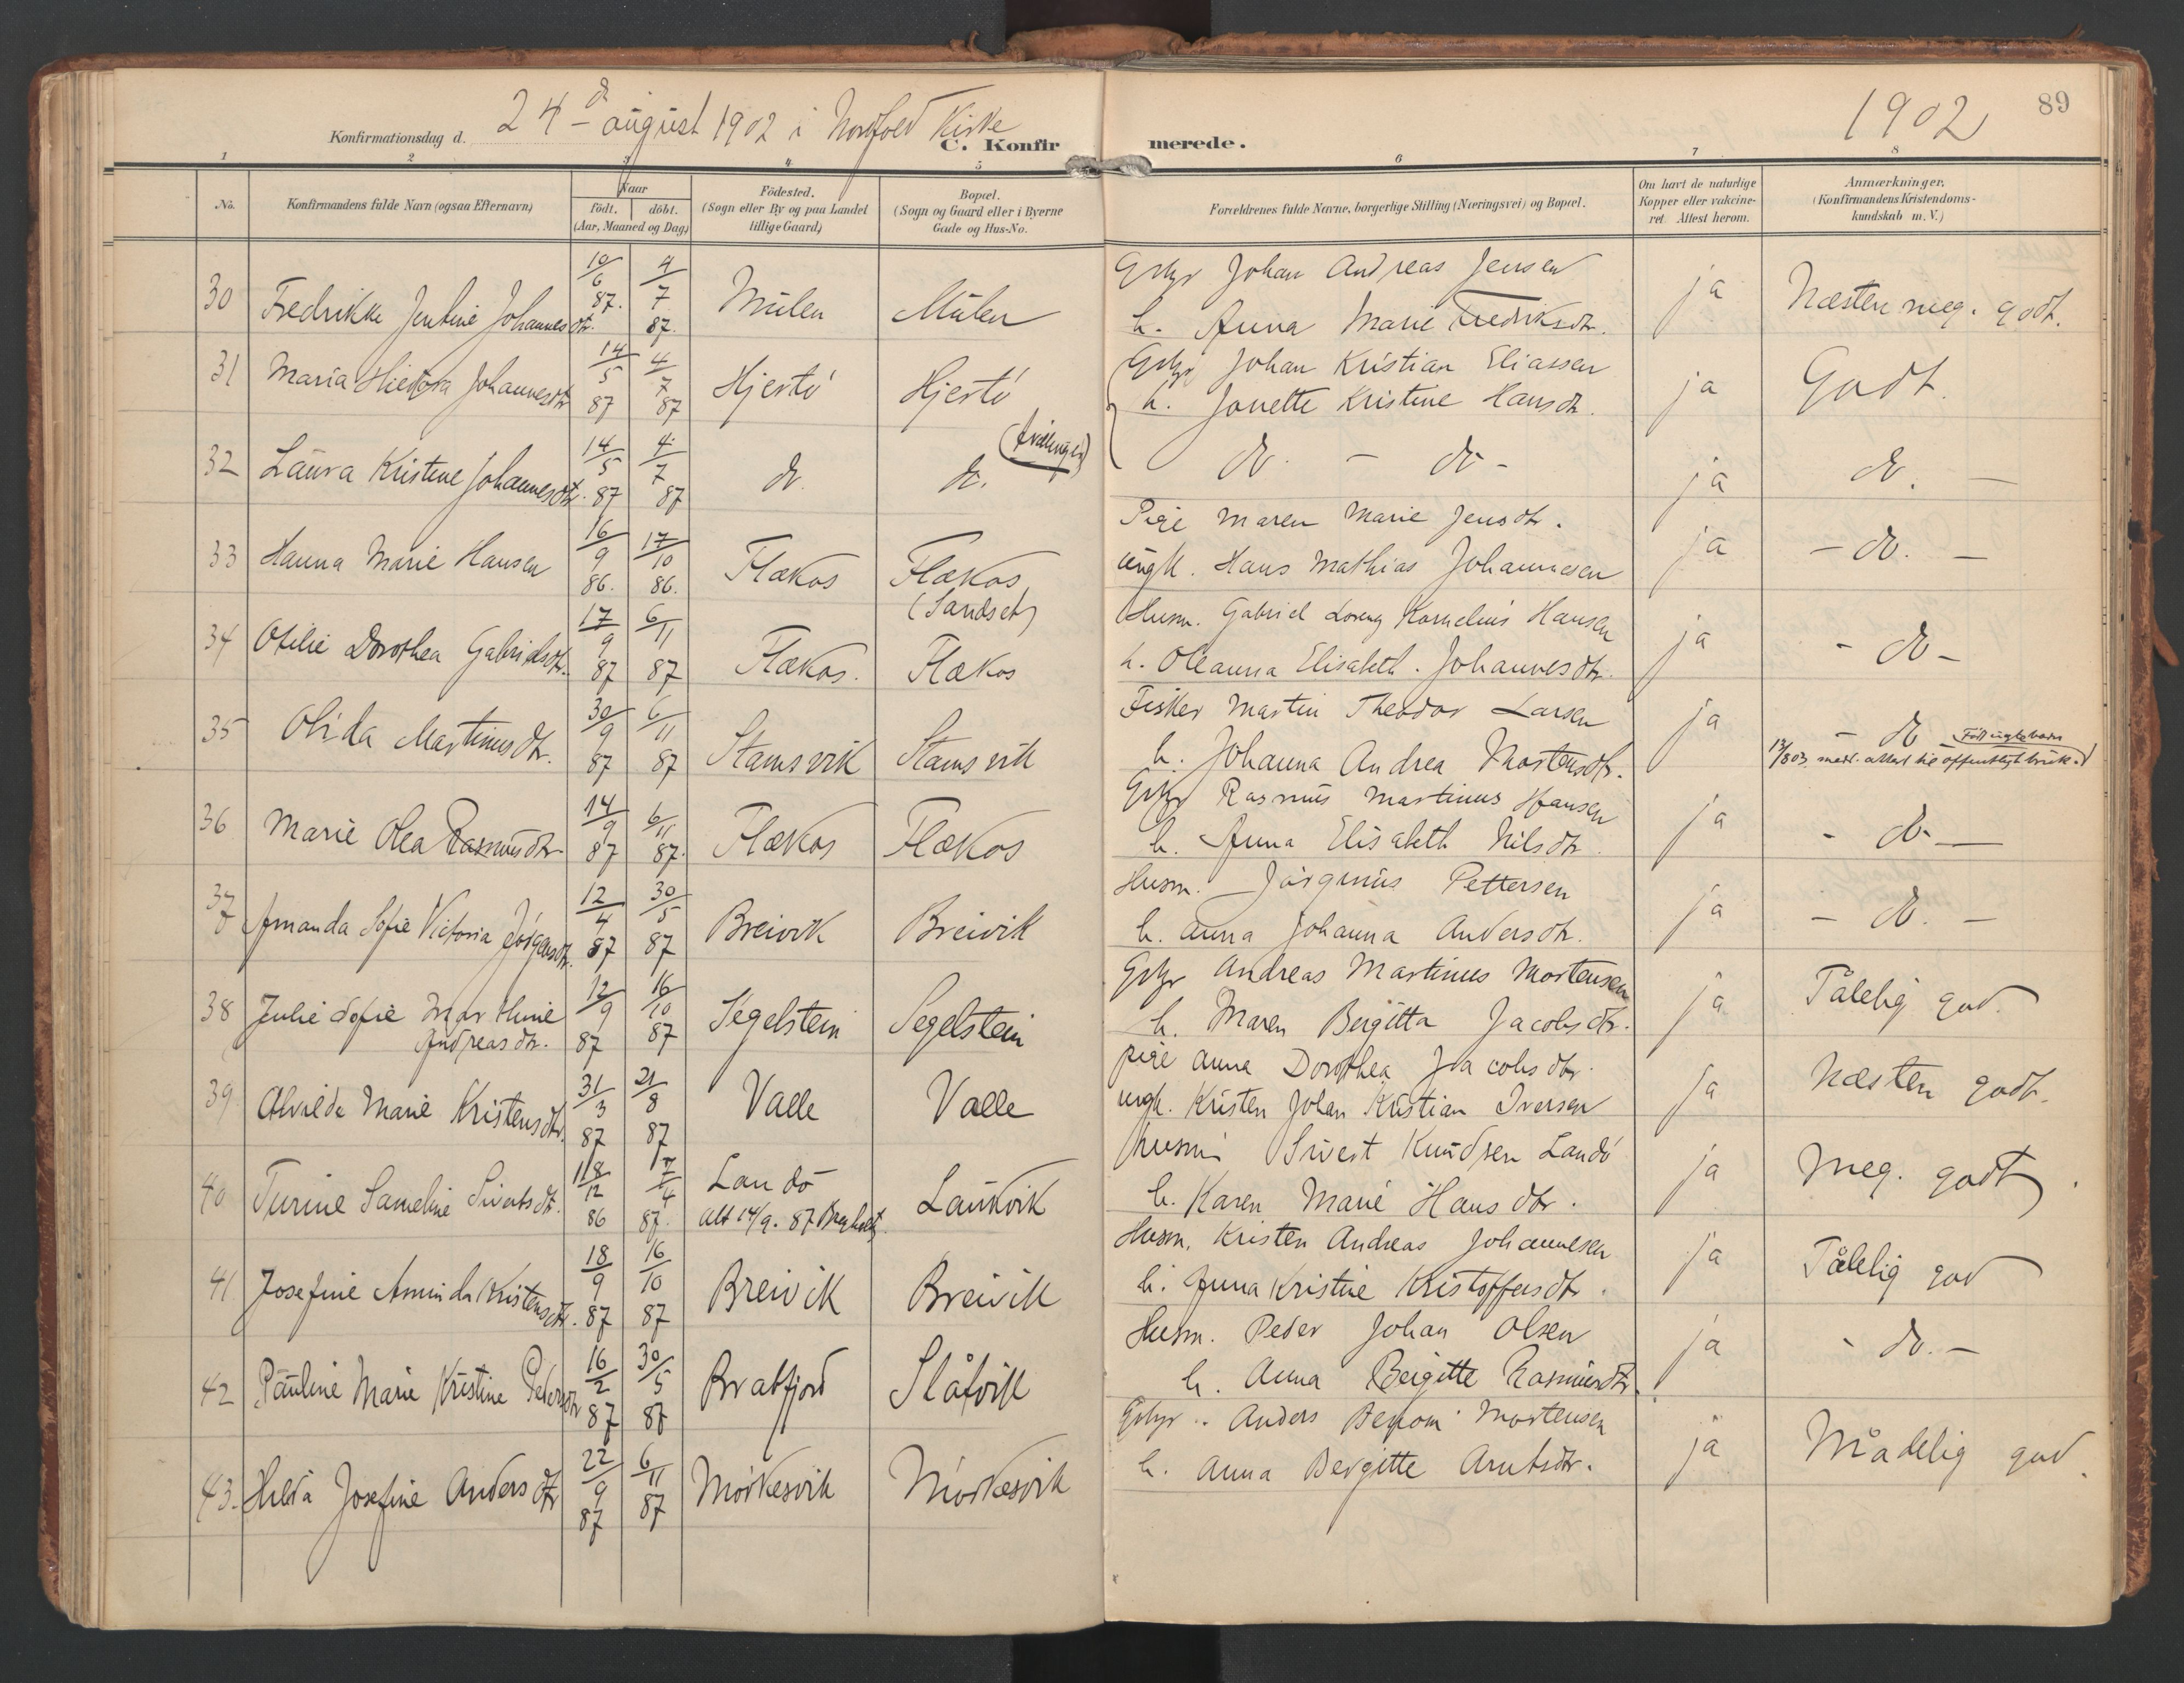 Konfirmationsdag d. 24de august 1902 i Nordfold Kirke
C. Konfirmerede.
1902
89
1 2 3 4 5 6 7 8
No.
Konfirmandens fulde Navn (ogsaa Efternavn)
Naar
födt. döbt.
(Aar, Maaned og Dag)
Födested.
(Sogn eller By og paa Landet
tillige Gaard)
Bopæl.
(Sogn og Gaard eller i Byerne
Gade og Hus-No.
Forældrenes fulde Navne, borgerlige Stilling (Næringsvei) og Bopæl.
Om havt de naturlige
Kopper eller vakcine-
ret. Attest herom.
Anmærkninger.
(Konfirmandens Kristendoms-
kundskab m. V.)
30 Fredrikke Jentine Johannesdtr. 10/6 87. 4/7 87. Mulen Mulen
Grbgr Johan Andreas Jensen
h. Anna Marie Fredriksdtr.
ja Næsten meg. godt.
31 Maria Johannesdtr 14/5 87 4/7 87 Hjertö Hjertö
Grbgr Johan Kristian Eliassen
h. Jonette Kristine Hansdtr.
ja Godt.
32 Laura Kristine Johannesdtr. 14/5 87 4/7 87 do. do. (tvillinger)
do. - do -
ja do. -
33 Hanna Marie Hansen 16/9 86. 17/10 86. Flækos Flækos
(Sandset)
Pige Maren Marie Jensdtr.
ungk. Hans Mathias Johannesen
ja - do. -
34 Otilie Dorothea Gabrielsdtr. 17/9 87 6/11 87 Flækos. Flækos
Husm. Gabriel Lorenz Kornelius Hansen
h. Oleanna Elisabeth Johannesdtr.
ja - do -
35 Olida Martinusdtr. 30/9 87 6/11 87 Stamsvik Stamsvik
Fisker Martin Theodor Larsen
h. Johanna Andrea Mortensdtr.
ja - do -
13/8 03. attest til offentligt bruk.
36 Marie Olea Rasmusdtr 14/9 87 6/11 87. Flækos Flækos
Grbgr Rasmus Martinus Hansen
h. Anna Elisabeth Nilsdtr.
ja - do -
37 Amanda Sofie Victoria Jörgensdtr. 12/4 87 30/5 87 Breivik Breivik
Husm. Jörginus Pettersen
h. Anna Johanna Andersdtr.
ja - do. -
38 Julie Sofie Marthine
Andreasdtr. 12/9 87 16/10 87 Segelstein Segelstein
Grbgr Andreas Martinus Mortensen
h. Maren Bergitta Jacobsdtr.
ja Tålelig god.
39 Alvilde Marie Kristensdtr. 31/3 87 21/8 87 Valle Valle
pige Anna Dorothea Jacobsdtr.
ungk. Kristen Johan Kristian Iversen
ja Næsten godt.
40 Turine Sameline Sivertsdt. 18/12 86 17/4 87. Landö
att 14/9. 87 Laukvik
husm. Sivert Knudsen Landö
h. Karen Marie Hansdtr.
ja Meg. godt.
41 Josefine Aminda Kristensdtr. 18/9 87 16/10 87 Breivik Breivik
Husm. Kristen Andreas Johannesen
h. Anna Kristine Kristoffersdtr.
ja Tålelig god
42 Pauline Marie Kristine Pedersdtr 16/2 87 30/5 87 Bratfjord Slåtvik
Husm. Peder Johan Olsen
h. Anna Bergitte Rasmusdtr.
ja - do. -
43. Hilda Josefine Andersdtr 22/9 87 6/11 87 Mörkesvik Mörkesvik
Grbgr. Anders Benoni Mortensen
h. Anna Bergitte Arntsdtr.
ja Mådelig god.